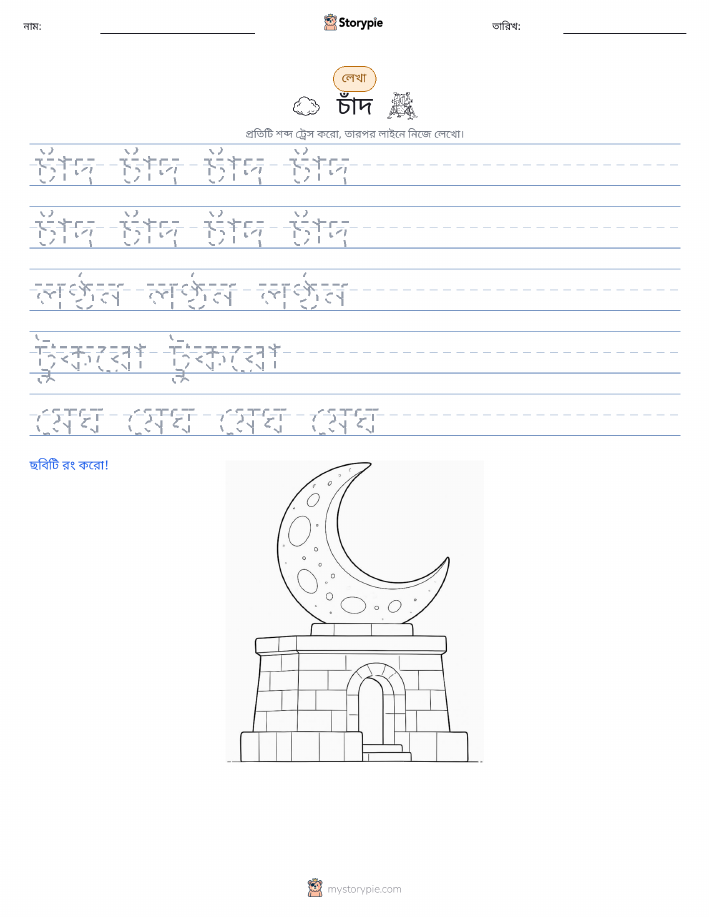 নাম:
Storypie
তারিখ:
লেখা
চাঁদ
প্রতিটি শব্দ ট্রেস করো, তারপর লাইনে নিজে লেখো।
চাঁদ চাঁদ চাঁদ চাঁদ
চাঁদ চাঁদ চাঁদ চাঁদ
লণ্ঠন লণ্ঠন লণ্ঠন
টুকরো টুকরো
মেঘ মেঘ মেঘ মেঘ
ছবিটি রং করো!
mystorypie.com